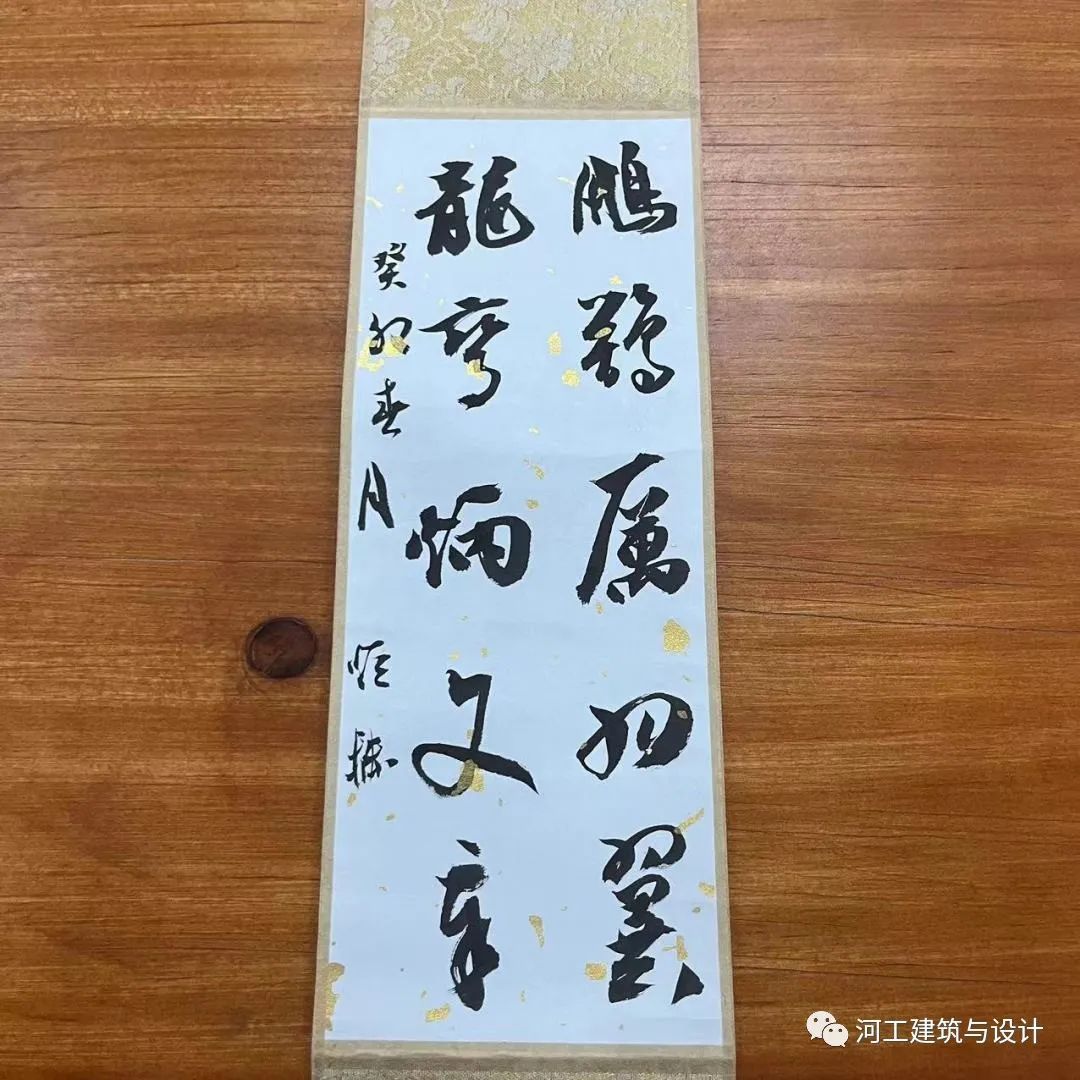 鵬厲羽翼
龍鸞炳文章
癸卯春月
河工建筑与设计